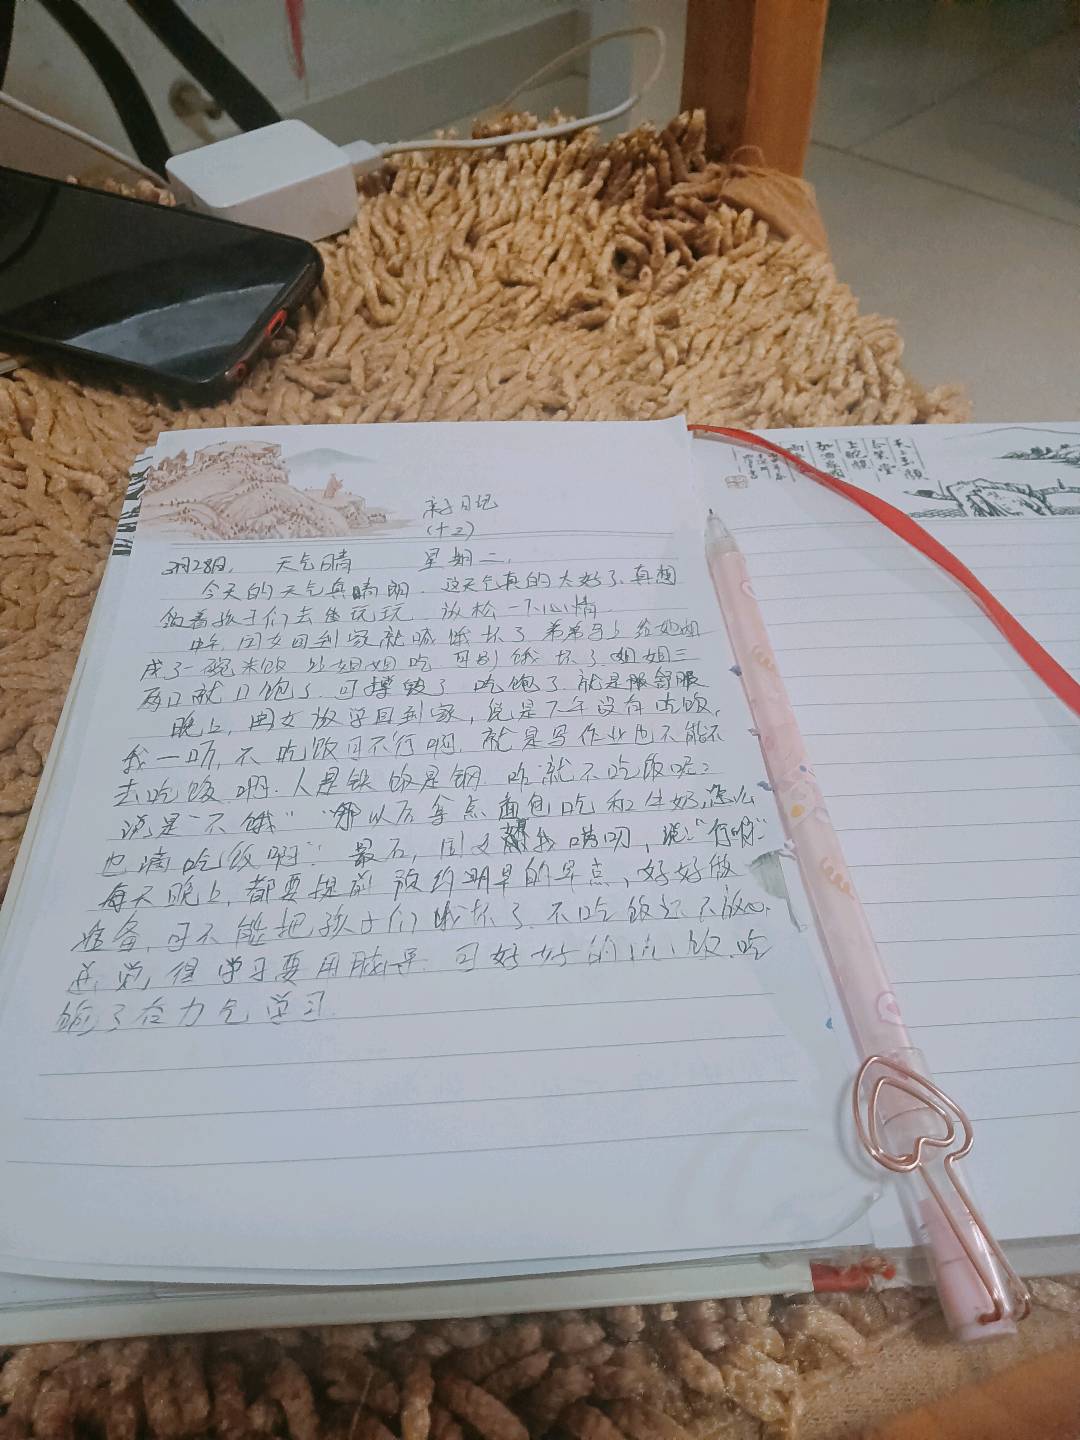 亲子日记
(十二)
2月28日, 天气晴 星期二.
今天的天气真晴朗. 这天气真的太好了.真想
领着孩子们去玩玩 放松一下心情.
中午,闺女回到家就喊饿坏了 弟弟马上给姐姐
成了一碗米饭 姐姐吃 可别饿坏了 姐姐三
两口就口饱了. 可撑 了 吃饱了.就是服舒服
晚上, 闺女放学回到家, 说是下午没有吃饭,
我一听,不吃饭可不行啊. 就是写作业也不能不
去吃饭啊. 人是铁饭是钢 咋就不吃饭呢?
说是"不饿" "那以后拿点面包吃和牛奶,怎么
也 吃饭啊." 最后, 闺女 我 叨, 说:"行啊"
每天晚上, 都要提前预约明早的早点, 好好做
准备, 可不能把孩子们饿坏了.不吃饭 不放心.
学习要用脑子. 可好好的 饭.吃
饱了有力气学习.